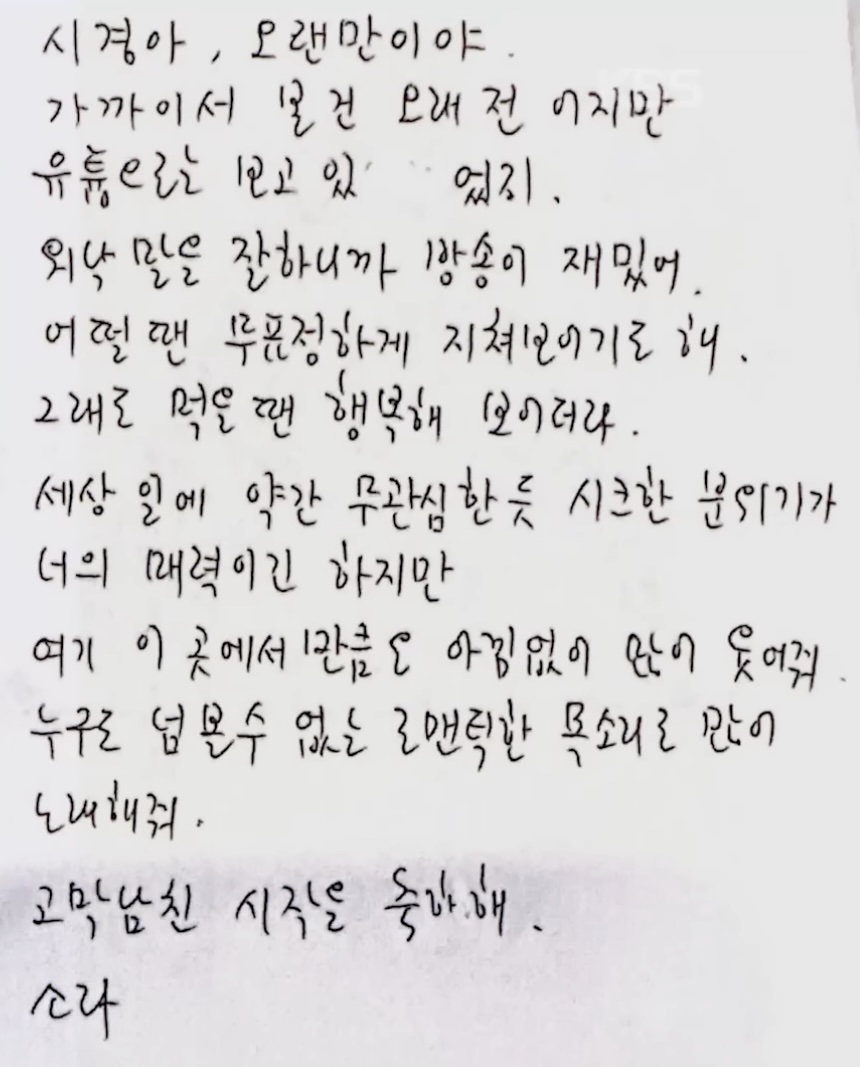 시경아, 오랜만이야.
가까이서 본 건 오래 전 이지만
유튭으로는 보고 있었지.
워낙 말을 잘하니까 방송이 재밌어.
어떨 땐 무표정하게 지쳐보이기도 해.
그래도 먹을 땐 행복해 보이더라.
세상 일에 약간 무관심한듯 시크한 분위기가
너의 매력이긴 하지만
여기 이 곳에서 만큼은 아낌없이 많이 웃어줘.
누구도 넘볼수 없는 로맨틱한 목소리로 많이
노래해줘.
고막남친 시작을 축하해.
소라
KBS